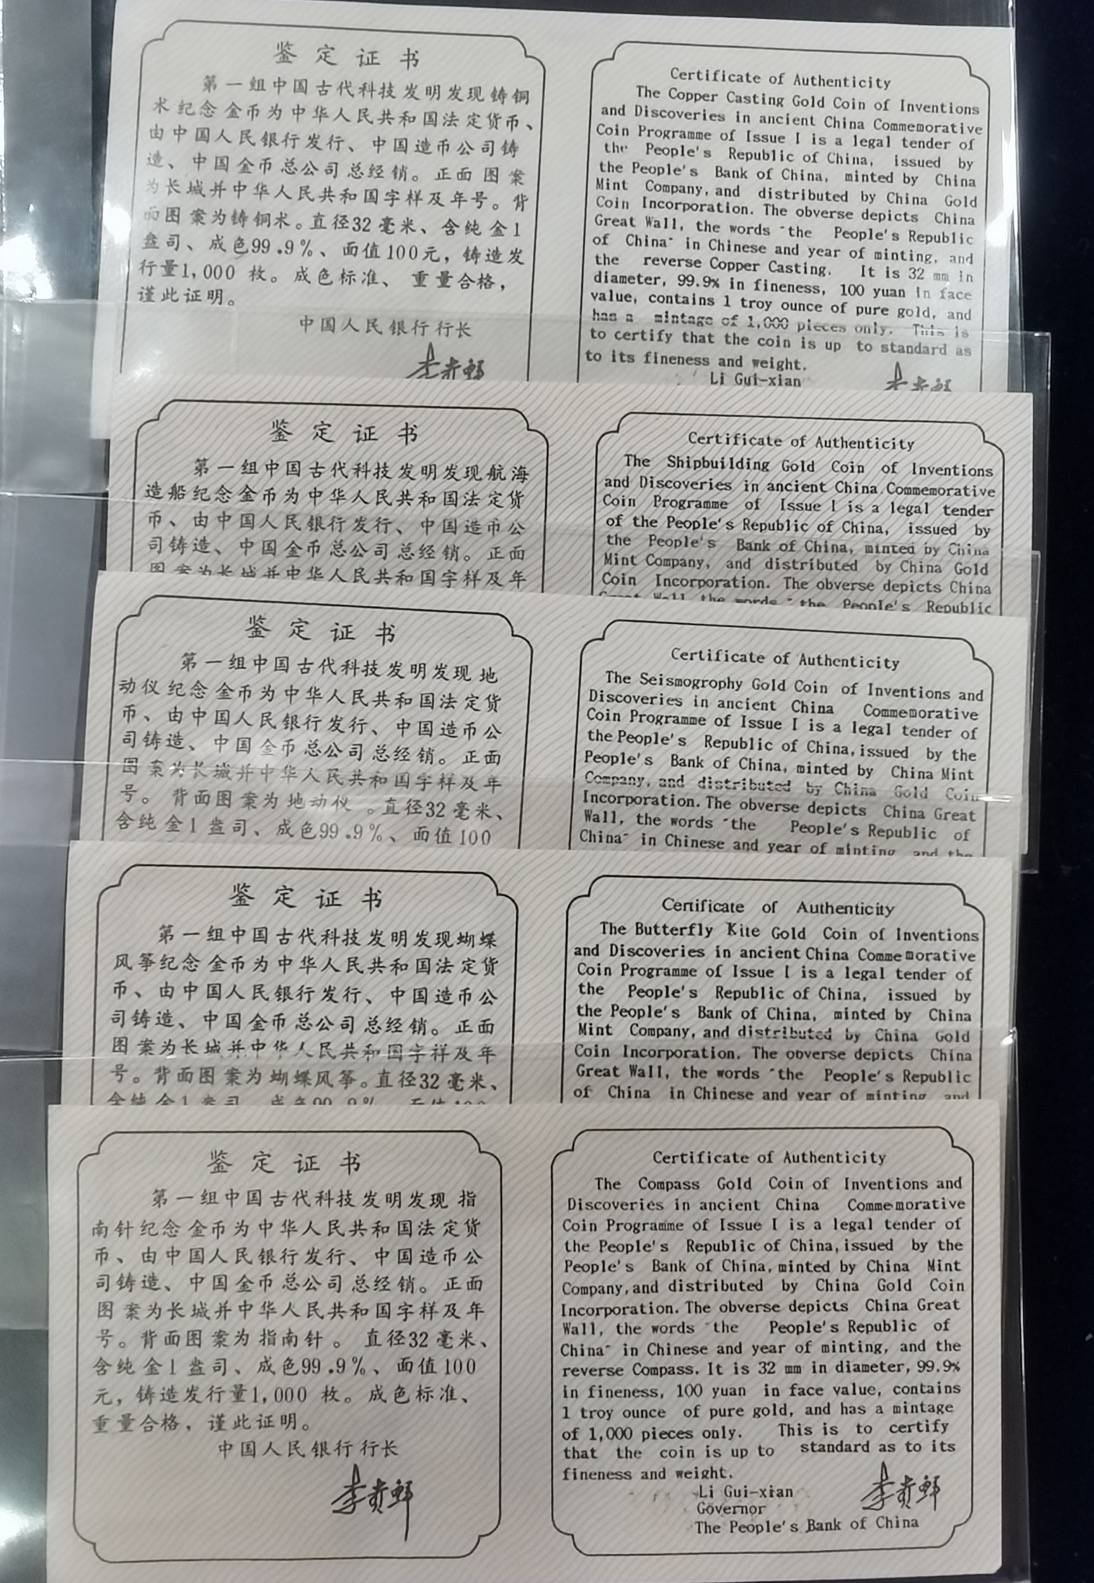 鉴定证书
第一组中国古代科技发明发现铸铜
术纪念金币为中华人民共和国法定货币、
由中国人民银行发行、中国造币公司铸
造、中国金币总公司总经销。正面图案
为长城并中华人民共和国字样及年号。背
面图案为铸铜术。直径32毫米、含纯金1
盎司、成色99.9%、面值100元，铸造发
行量1,000 枚。成色标准、重量合格，
谨此证明。
中国人民银行行长
李贵鲜
Certificate of Authenticity
The Copper Casting Gold Coin of Inventions
and Discoveries in ancient China Commemorative
Coin Programme of Issue I is a legal tender of
the People's Republic of China, issued by
the People's Bank of China, minted by China
Mint Company, and distributed by China Gold
Coin Incorporation. The obverse depicts China
Great Wall, the words "the People's Republic
of China" in Chinese and year of minting, and
the reverse Copper Casting. It is 32 mm in
diameter, 99.9% in fineness, 100 yuan in face
value, contains 1 troy ounce of pure gold, and
has a mintage of 1,000 pieces only. This is
to certify that the coin is up to standard as
to its fineness and weight.
Li Gui-xian
李贵鲜
鉴定证书
第一组中国古代科技发明发现航海
造船纪念金币为中华人民共和国法定货
币、由中国人民银行发行、中国造币公
司铸造、中国金币总公司总经销。正面
图案为长城并中华人民共和国字样及年
Certificate of Authenticity
The Shipbuilding Gold Coin of Inventions
and Discoveries in ancient China Commemorative
Coin Programme of Issue I is a legal tender
of the People's Republic of China, issued by
the People's Bank of China, minted by China
Mint Company, and distributed by China Gold
Coin Incorporation. The obverse depicts China
Great Wall, the words "the People's Republic
鉴定证书
第一组中国古代科技发明发现地
动仪纪念金币为中华人民共和国法定货
币、由中国人民银行发行、中国造币公
司铸造、中国金币总公司总经销。正面
图案为长城并中华人民共和国字样及年
号。背面图案为地动仪。直径32毫米、
含纯金1盎司、成色99.9%、面值100
Certificate of Authenticity
The Seismogrophy Gold Coin of Inventions and
Discoveries in ancient China Commemorative
Coin Programme of Issue I is a legal tender of
the People's Republic of China, issued by the
People's Bank of China, minted by China Mint
Company, and distributed by China Gold Coin
Incorporation. The obverse depicts China Great
Wall, the words "the People's Republic of
China" in Chinese and year of minting, and the
鉴定证书
第一组中国古代科技发明发现蝴蝶
风筝纪念金币为中华人民共和国法定货
币、由中国人民银行发行、中国造币公
司铸造、中国金币总公司总经销。正面
图案为长城并中华人民共和国字样及年
号。背面图案为蝴蝶风筝。直径32毫米、
含纯金1盎司、成色99.9%、面值100
Certificate of Authenticity
The Butterfly Kite Gold Coin of Inventions
and Discoveries in ancient China Commemorative
Coin Programme of Issue I is a legal tender of
the People's Republic of China, issued by
the People's Bank of China, minted by China
Mint Company, and distributed by China Gold
Coin Incorporation. The obverse depicts China
Great Wall, the words "the People's Republic
of China in Chinese and year of minting, and
鉴定证书
第一组中国古代科技发明发现指
南针纪念金币为中华人民共和国法定货
币、由中国人民银行发行、中国造币公
司铸造、中国金币总公司总经销。正面
图案为长城并中华人民共和国字样及年
号。背面图案为指南针。直径32毫米、
含纯金1盎司、成色99.9%、面值100
元，铸造发行量1,000 枚。成色标准、
重量合格，谨此证明。
中国人民银行行长
李贵鲜
Certificate of Authenticity
The Compass Gold Coin of Inventions and
Discoveries in ancient China Commemorative
Coin Programme of Issue I is a legal tender of
the People's Republic of China, issued by the
People's Bank of China, minted by China Mint
Company, and distributed by China Gold Coin
Incorporation. The obverse depicts China Great
Wall, the words "the People's Republic of
China" in Chinese and year of minting, and the
reverse Compass. It is 32 mm in diameter, 99.9%
in fineness, 100 yuan in face value, contains
1 troy ounce of pure gold, and has a mintage
of 1,000 pieces only. This is to certify
that the coin is up to standard as to its
fineness and weight.
Li Gui-xian
Governor
The People's Bank of China
李贵鲜